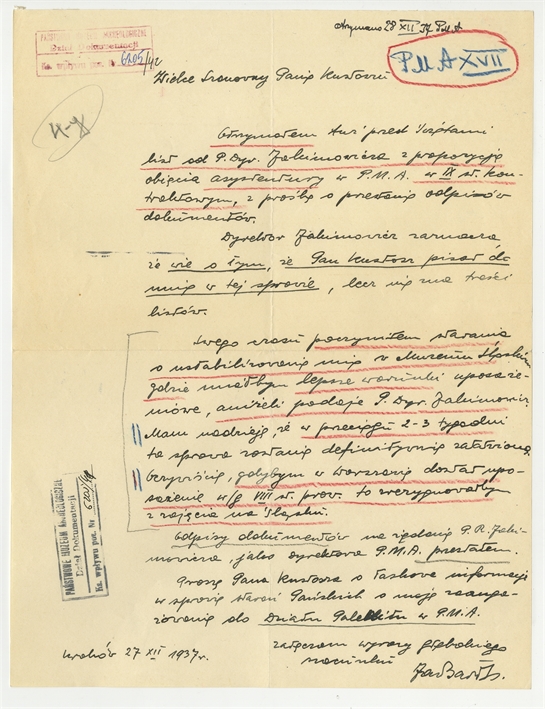 otrzymano 28 XII 37 P.M.A
PAŃSTWOWE MUZEUM ARCHEOLOGICZNE
Dział Dokumentacji
Ks. wpływu poz. Nr 6205/42
P.M.A XVII
Wielce Szanowny Panie Kustoszu
Otrzymałem tuż przed Świętami
list od P. Dyr. Jakimowicza z propozycją
objęcia asystentury w P.M.A. w IX st. kon-
traktowym, z prośbą o przesłanie odpisów
dokumentów.
Dyrektor Jakimowicz zaznacza,
że wie o tym, że Pan Kustosz pisał do
mnie w tej sprawie, lecz nie zna treści
listów.
Swego czasu poczyniłem starania
o ustabilizowanie mnie w Muzeum Śląskim
gdzie miałbym lepsze warunki uposaże-
niowe, aniżeli podaje P. Dyr. Jakimowicz.
Mam nadzieję, że w przeciągu 2-3 tygodni
ta sprawa zostanie definitywnie załatwiona.
Oczywiście, gdybym w Warszawie dostał upo-
sażenie w/g VIII st. prow. to zrezygnowałbym
z zajęcia na Śląsku.
Odpisy dokumentów na żądanie P. R. Jaki-
mowicza jako dyrektora P.M.A. przesłałem.
Proszę Pana Kustosza o łaskawe informacje
w sprawie starań Pańskich o moje zaanga-
żowanie do Działu Paleolitu w P.M.A.
załączam wyrazy głębokiego
szacunku
Kraków 27 XII 1937r.
PAŃSTWOWE MUZEUM ARCHEOLOGICZNE
Dział Dokumentacji
Ks. wpływu poz. Nr